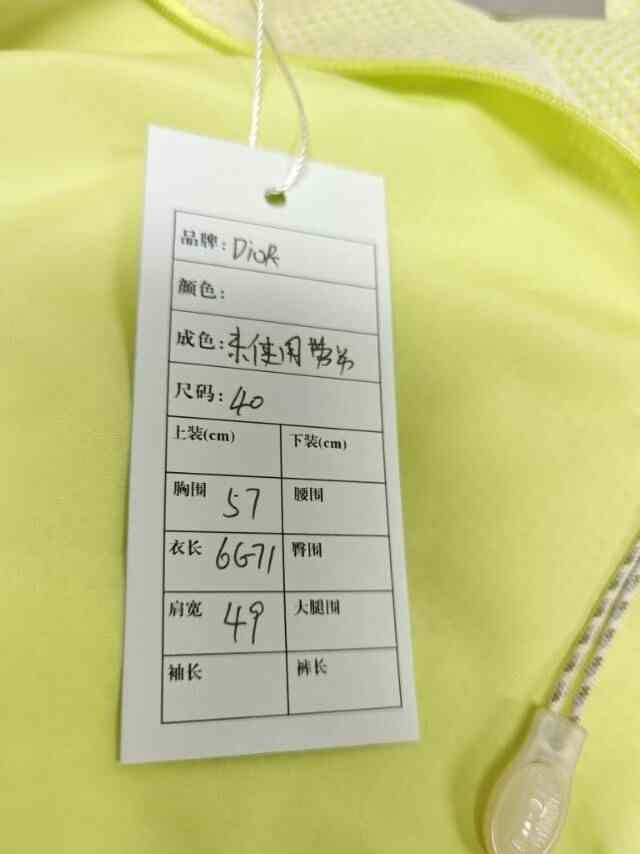 品牌: DioR
颜色:
成色: 未使用带吊
尺码: 40
上装(cm) 下装(cm)
胸围 57 腰围
衣长 66-71 臀围
肩宽 49 大腿围
袖长 裤长